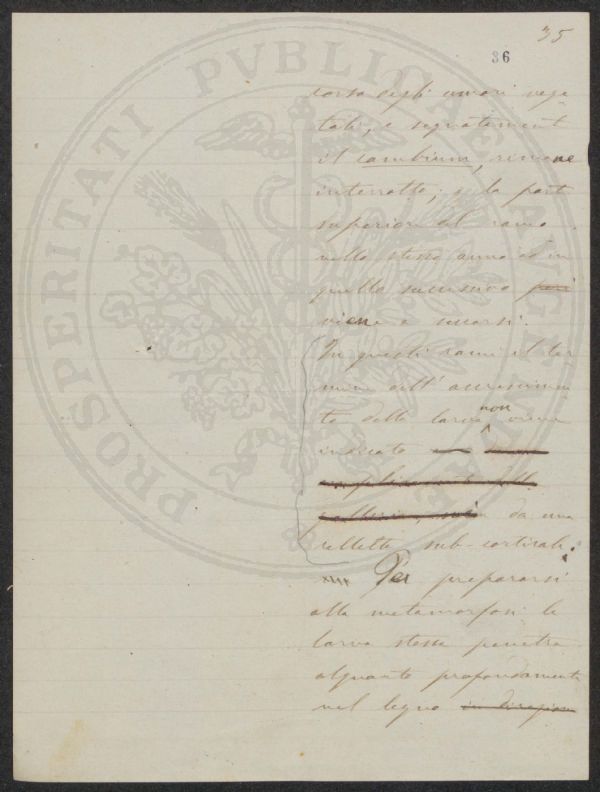 35
36
PROSPERITATI PVBLICAE AVGENDAE
corso degli umori vege
tali, e segnatamente
il cambium, rimane
interrotto; e la parte
superiore del ramo
nello stesso anno od in
quello successivo
viene a morsi.
In questi rami il ter
mine dell' accrescimen
to della larva non viene
indicato
galleria, da una
celletta sub-corticale.
Per prepararsi
alla metamorfosi la
larva stessa penetra
alquanto profondamente
nel legno in direzione